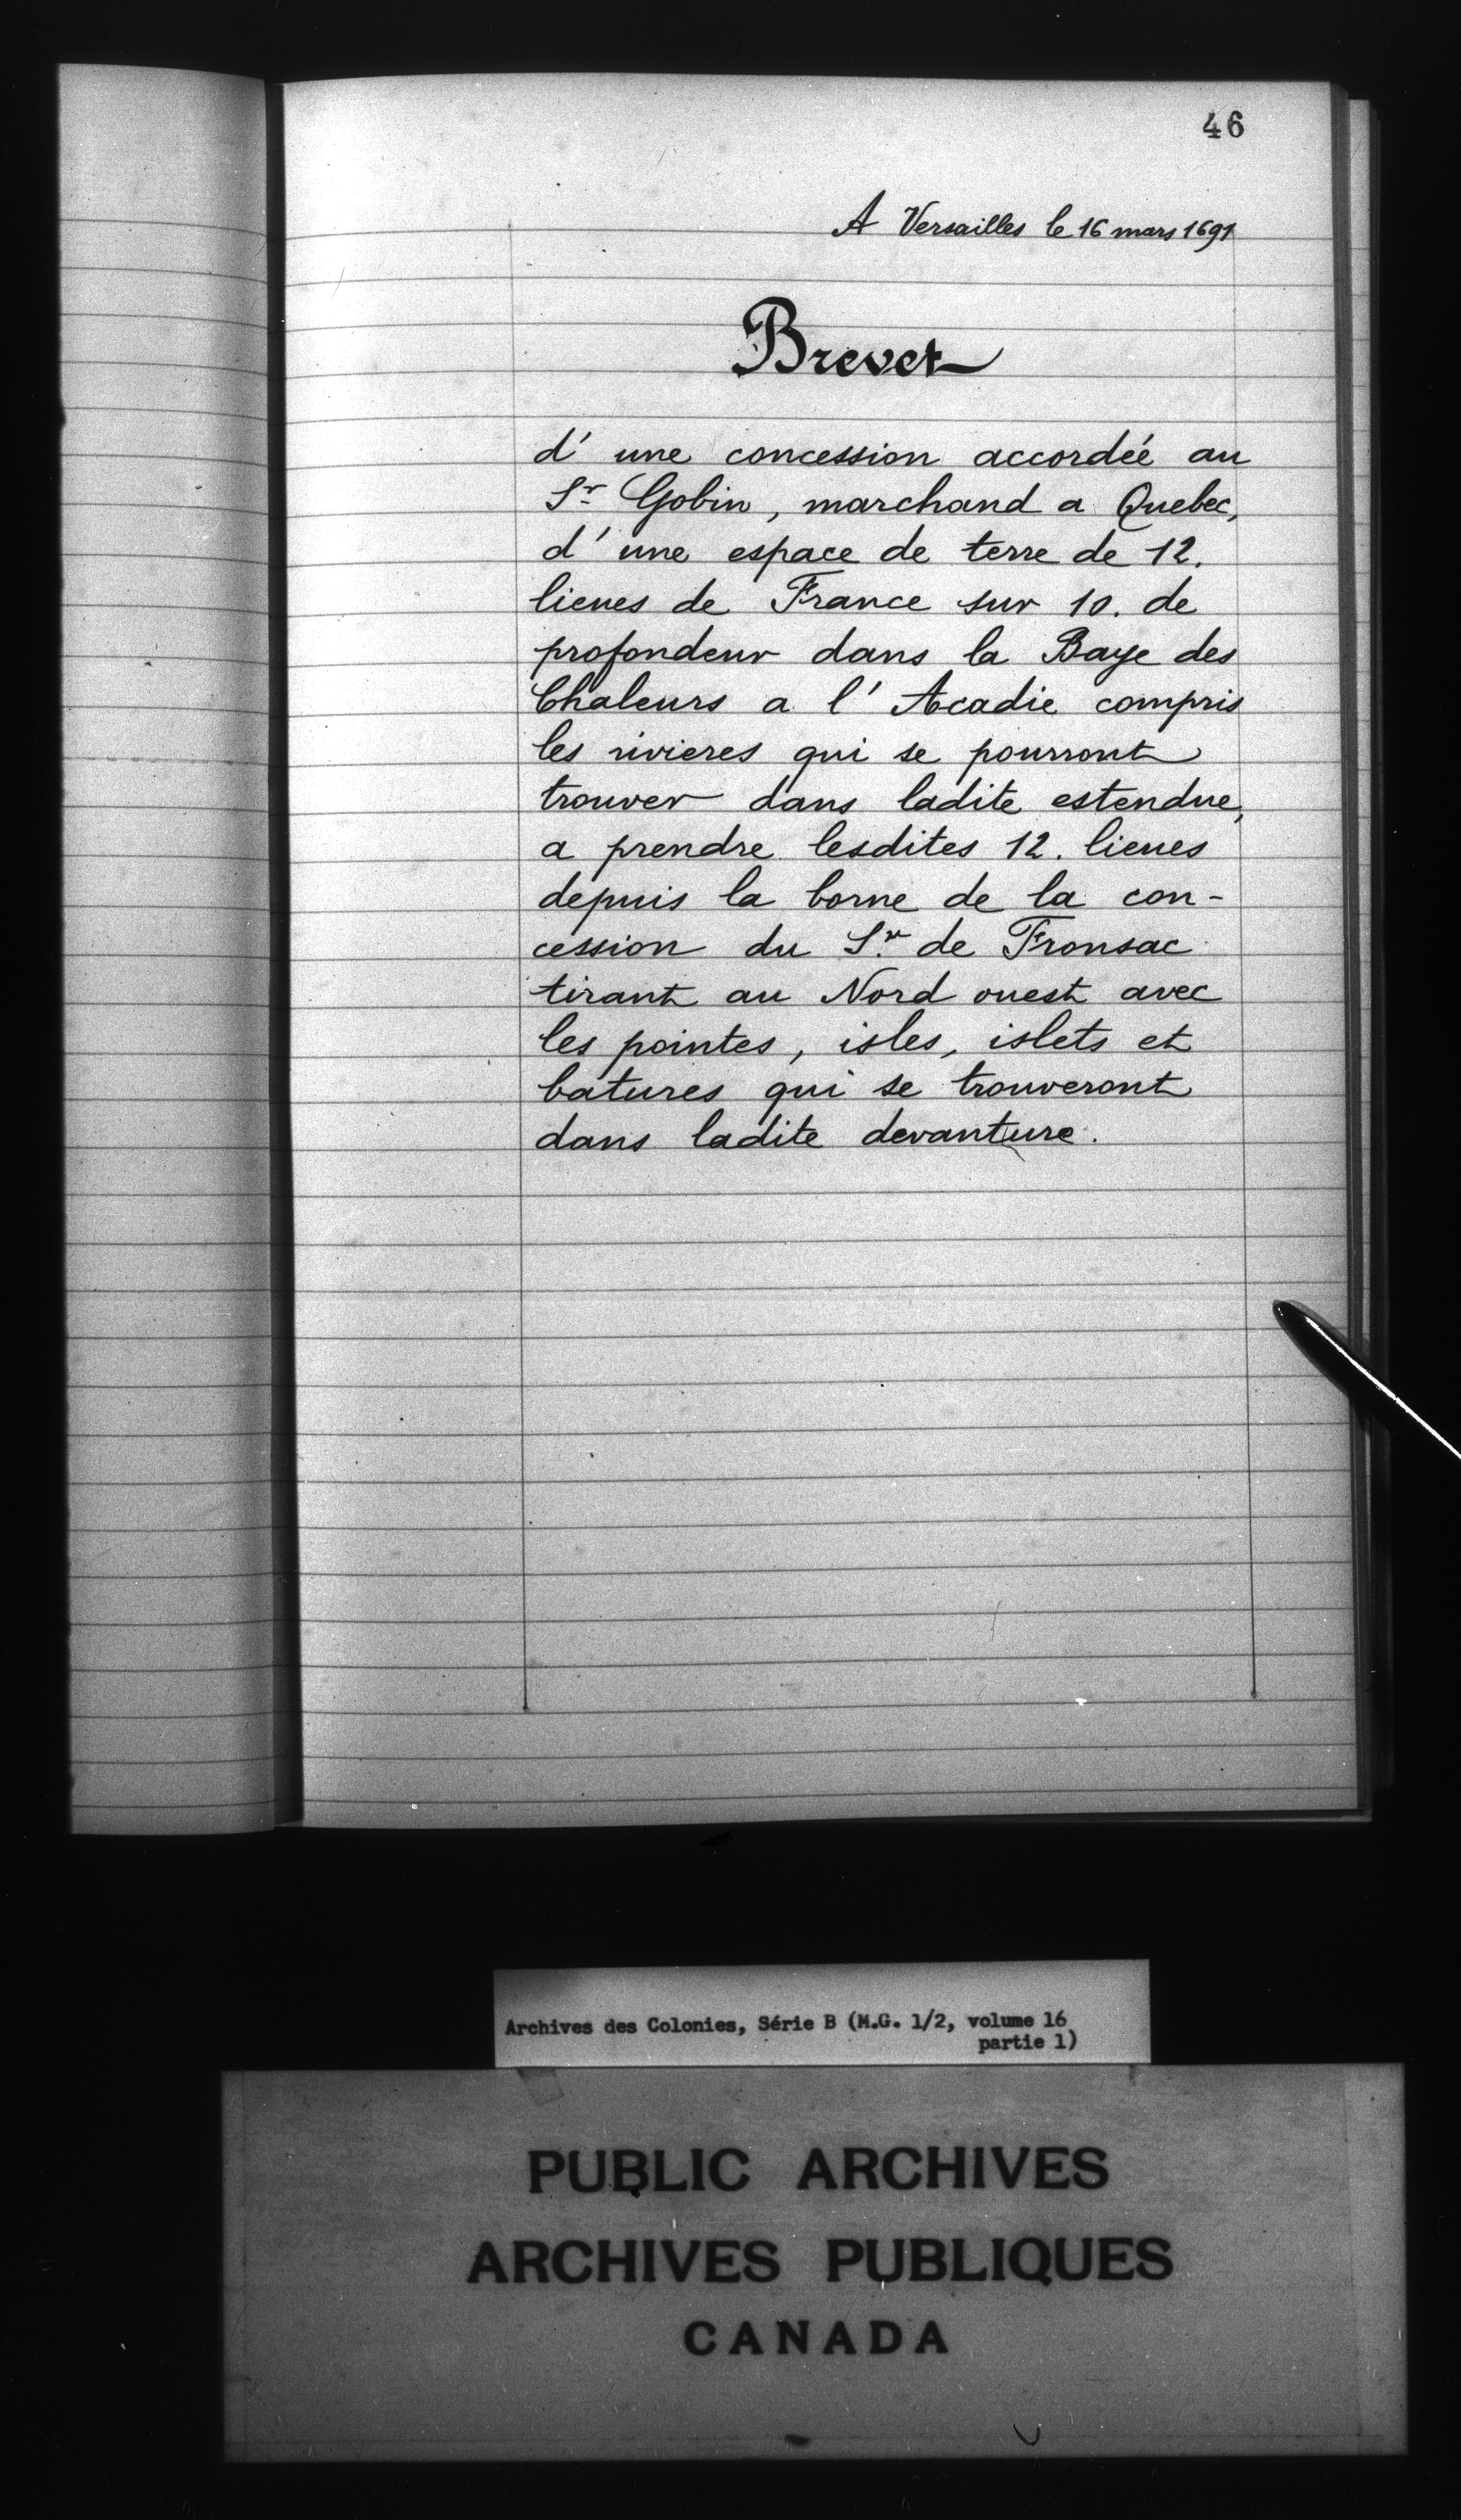 46
A Versailles le 16 mars 1691
Brevet
d' une concession accordéé au
Sr Gobin, marchand a Quebec,
d' une espace de terre de 12.
lieues de France sur 10. de
profondeur dans la Baye des
Chaleurs a l' Acadie compris
les rivieres qui se pourront
trouver dans ladite estendue,
a prendre lesdites 12. lieues
depuis la borne de la con-
cession du Sr. de Fronsac
tirant au Nord ouest avec
les pointes, isles, islets et
batures qui se trouveront
dans ladite devanture.
Archives des Colonies, Série B (M.G. 1/2, volume 16
partie 1)
PUBLIC ARCHIVES
ARCHIVES PUBLIQUES
CANADA